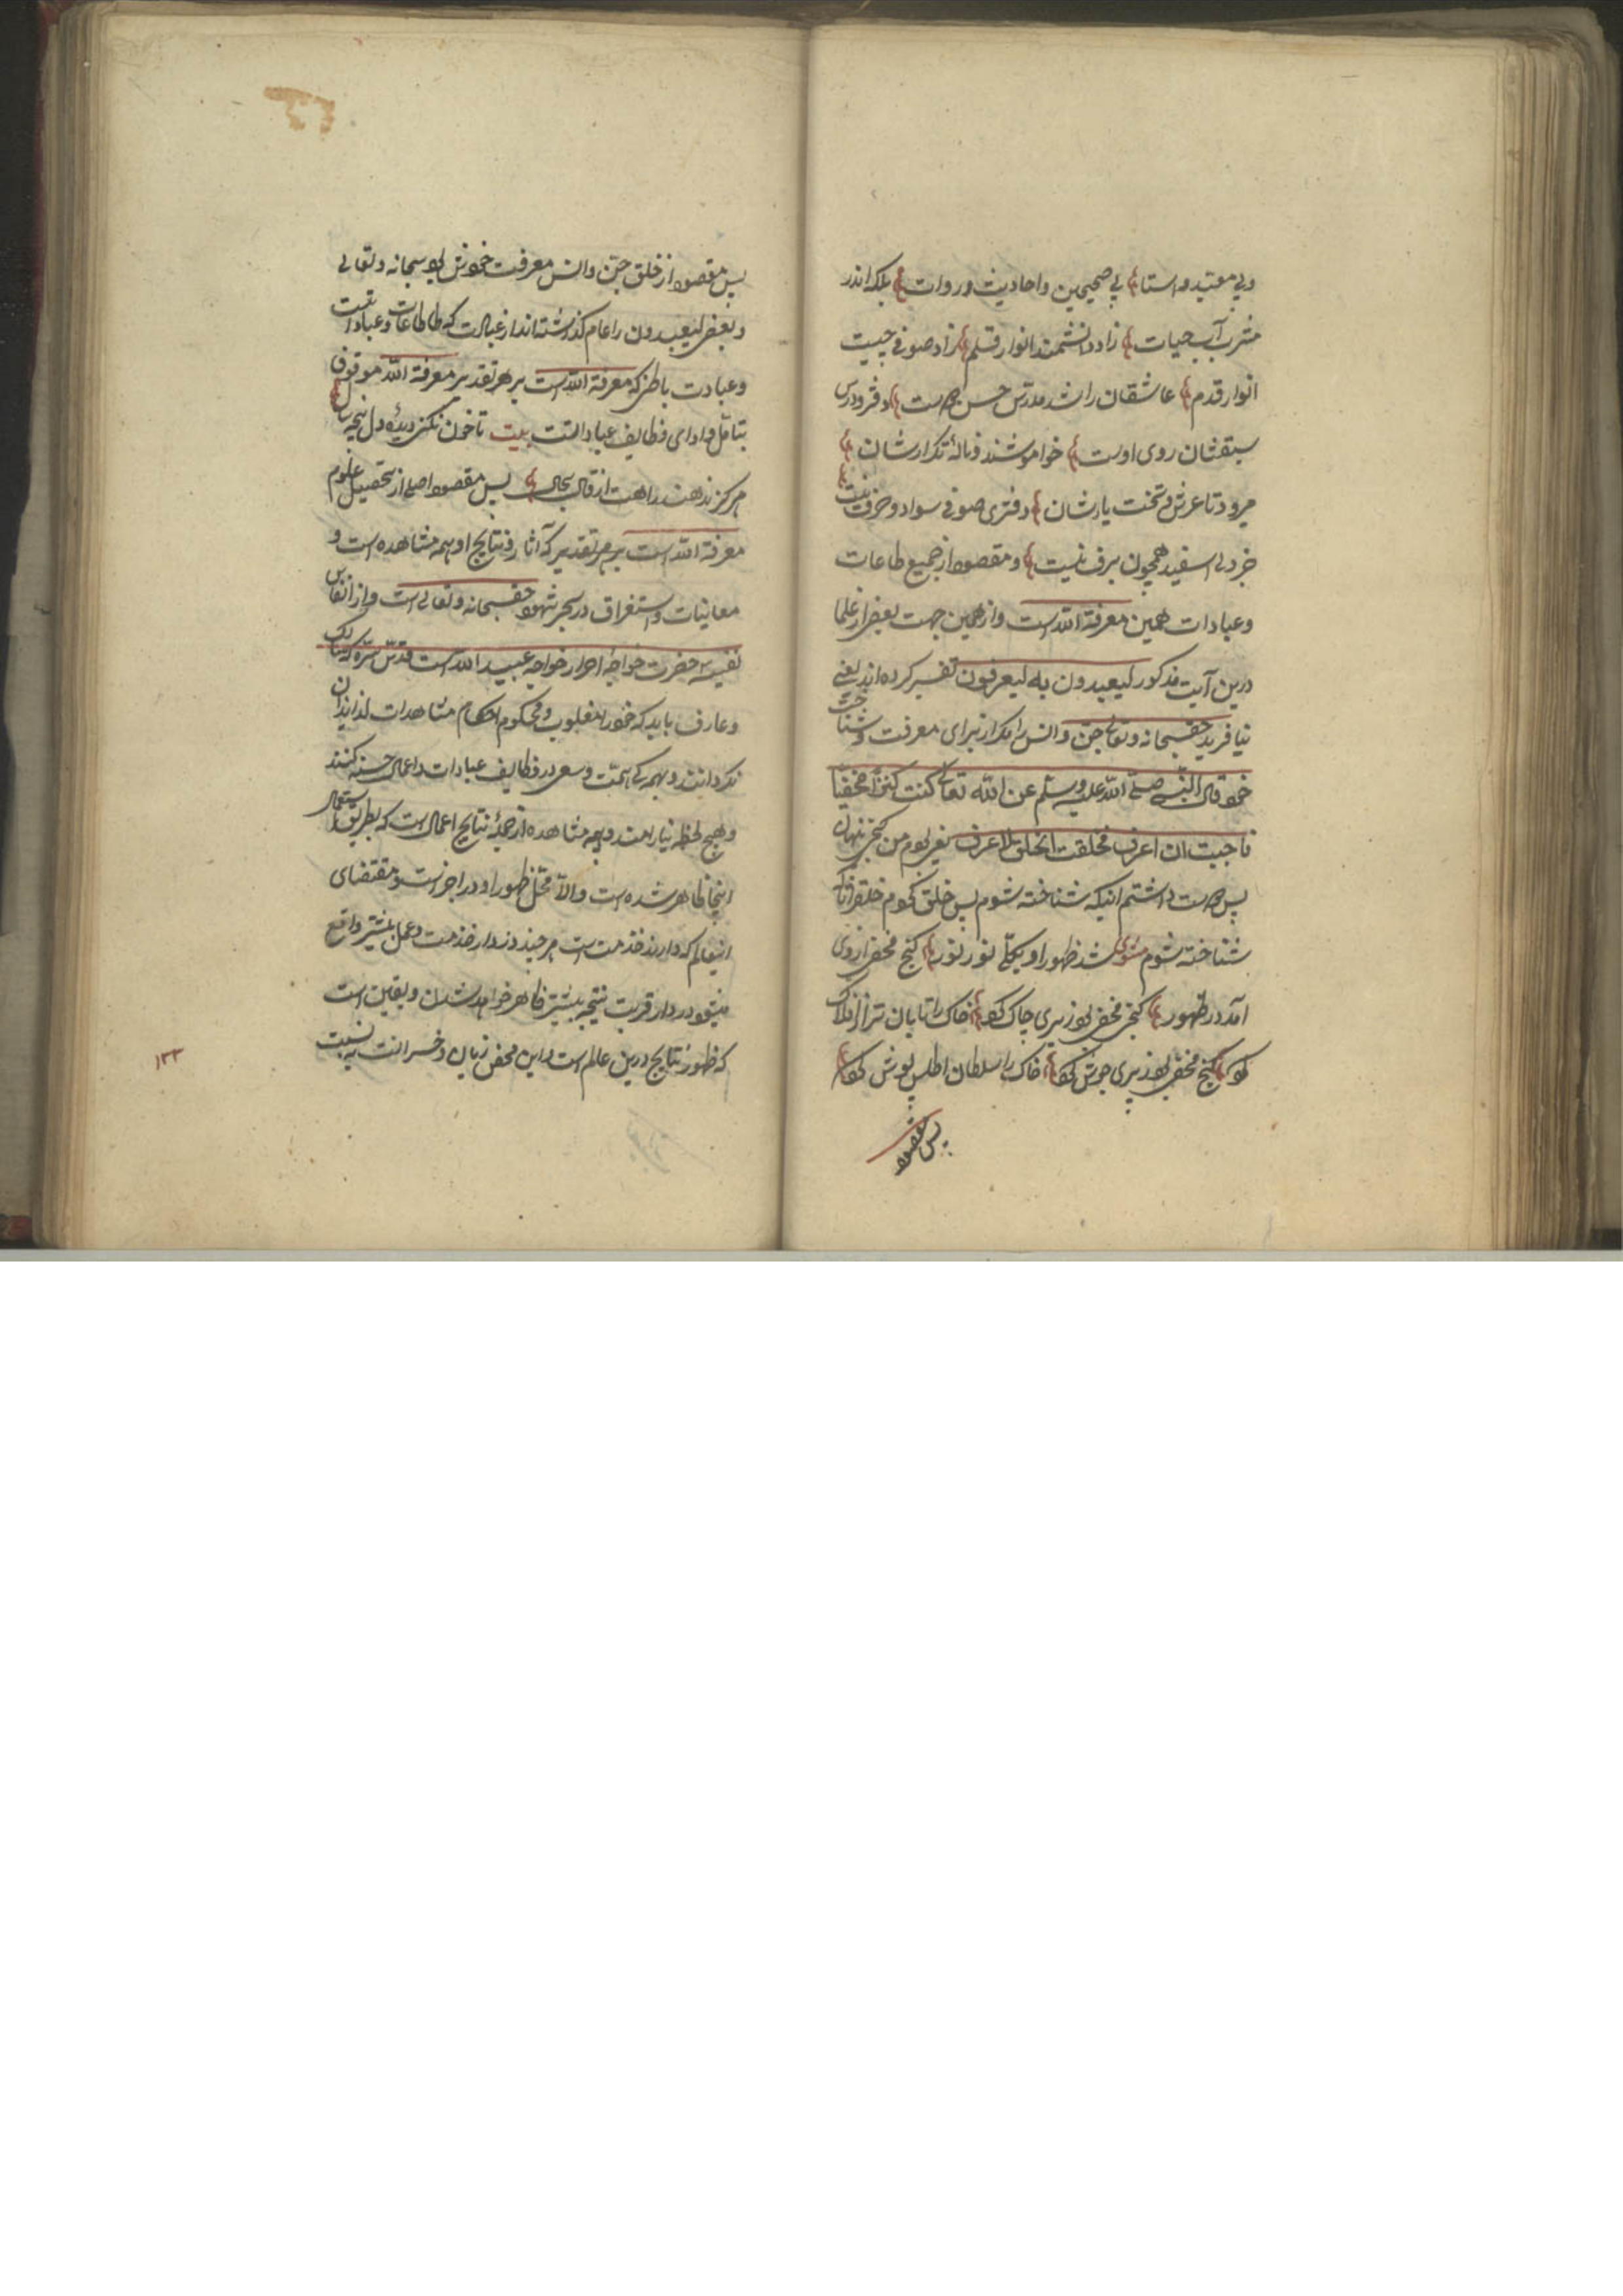 وبی معید و استا بی صحیحین و احادیث و روات بلکه اندر
مشرب آب حیات زاد دانشمند انوار قلم زاد صوفی چیست
انوار قدم عاشقان را شد مدرس حسن دوست دفتر و درس
سبقشان روی اوست خواموشند و ناله تکرارشان
میرود تا عرش و تخت یارشان دفتری صوفی سواد و حرف نیست
جز دل اسفید همچون برف نیست و مقصود از جمیع طاعات
و عبادات همین معرفة الله است و از همین جهت بعضی از علما
درین آیت مذکور لیعبدون به لیعرفون تفسیر کرده اند یعنی
نیافرید حق سبحانه و تعالی جن و انس را مکر از برای معرفت و شناخت
خود قال النبی صلی الله علیه وسلم عن الله تعالی کنت کنزا مخفیا
فاحببت ان اعرف فخلقت الخلق لاعرف یعنی بودم من کنجی پنهان
پس دوست داشتم انیکه شناخته شوم پس خلق کردم خلق را تا که
شناخته شوم مثنوی شد ظهور او بکلی نور نور کنج مخفی از وی
آمد در ظهور کنج مخفی بود ز پری چاک کرد خاک را تابان تر از افلاک
کرد کنج مخفی بود ز پری جوش کرد خاک را سلطان اطلس پوش کرد
پس مقصود
پس مقصود از خلق جن و انس معرفت خویش بود سبحانه و تعالی
و بعضی لیعبدون را عام کذاشته اند از عبادت که طاعات و عبادات
و عبادت باطن که معرفة الله است بر هر تقدیر معرفة الله موقوف
بتامل و ادای وظایف عبادات است بیت تا خون نکنی دیده و دل پنجه سال
هرکز ندهند راهت از قال بحال پس مقصود اصلی از تحصیل علوم
معرفة الله است بر هر تقدیر که آثار و نتایج او همه مشاهده است و
معاینات و استغراق در بحر شهود حق سبحانه و تعالی است و از انفاس
نفیسه حضرت خواجه احرار خواجه عبید الله است قدس سره که سالک
و عارف باید که خود را مغلوب و محکوم احکام مشاهدات لذایذ آن
نکردانند و بهمکی همت و سعی در وظایف عبادات و اعمال حسنه کنند
و هیچ لحظه نیارامند و همه مشاهده از جمله نتایج اعمال است که بطریق استعجال
اینجا ظاهر شده است والا محل ظهور او در آخر است و مقتضای
این عالم که دارند خدمت است هر چند در دار خدمت و عمل بیشتر واقع
میشود در دار قربت نتیجه بیشتر ظاهر خواهد شدن و یقین است
که ظهور نتایج درین عالم است و این محض زیان و خسرانست به نسبت
۱۳۳